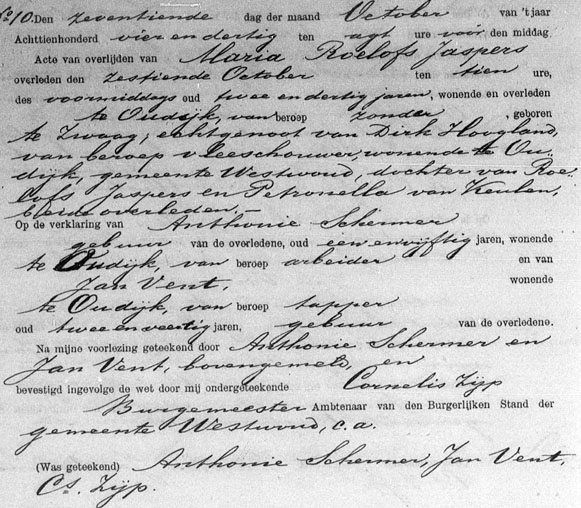 No 10. Den zeventiende dag der maand October van 't jaar
Achttienhonderd vier en dertig ten agt ure voor den middag
Acte van overlijden van Maria Roelofs Jaspers
overleden den zestiende October ten tien ure,
des voormiddags oud twee en dertig jaren, wonende en overleden
te Oudijk, van beroep zonder, geboren
te Zwaag; echtgenoot van Dirk Hoogland,
van beroep vleeschouwer, wonende te Ou-
dijk, gemeente Westwoud, dochter van Roe-
lofs Jaspers en Petronella van Keulen,
beide overleden.-
Op de verklaring van Anthonie Schermer
gebuur van de overledene, oud een en vijftig jaren, wonende
te Oudijk, van beroep arbeider en van
Jan Vent, wonende
te Oudijk, van beroep tapper
oud twee en veertig jaren, gebuur van de overledene.
Na mijne voorlezing geteekend door Anthonie Schermer en
Jan Vent, bovengemeld, en
bevestigd ingevolge de wet door mij ondergeteekende Cornelis Zijp
Burgemeester Ambtenaar van den Burgerlijken Stand der
gemeente Westwoud, c.a.
(Was geteekend) Anthonie Schermer, Jan Vent,
Cs. Zijp.